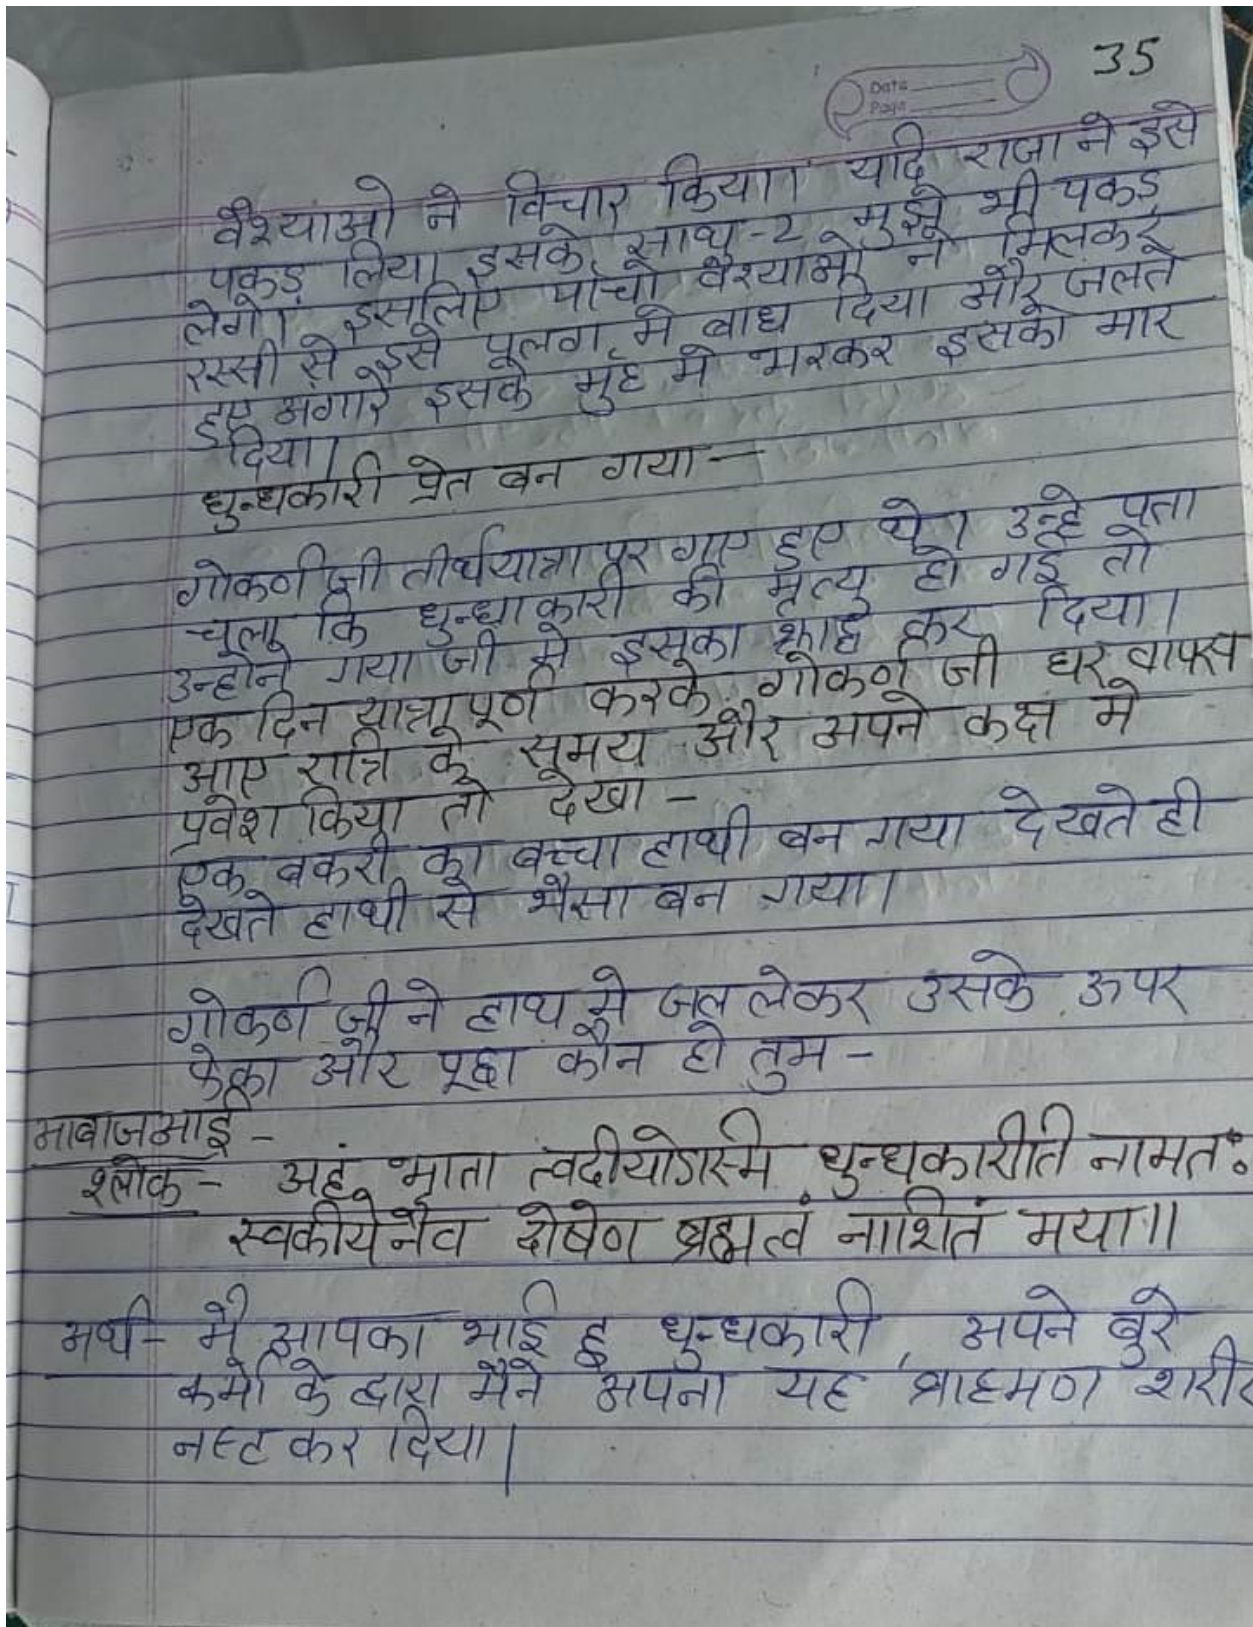 35
Date
Page
वैश्याओ ने विचार किया। यदि राजा ने इसे
पकड़ लिया इसके साथ-2 मुझे भी पकड़
लेगे। इसलिए पाँचो वैश्याओ ने मिलकर
रस्सी से इसे पलग मे बाध दिया और जलते
हुए अंगारे इसके मुँह मे भरकर इसको मार
दिया।
धुन्धकारी प्रेत बन गया —
गोकर्ण जी तीर्थयात्रा पर गए हुए थे। उन्हे पता
चला कि धुन्धाकारी की मृत्यु हो गई तो
उन्होने गया जी मे इसका श्राद्ध कर दिया।
एक दिन यात्रा पूर्ण करके गोकर्ण जी घर वापस
आए रात्रि के समय और अपने कक्ष मे
प्रवेश किया तो देखा -
एक बकरी का बच्चा हाथी बन गया देखते ही
देखते हाथी से भैसा बन गया।
गोकर्ण जी ने हाथ मे जल लेकर उसके ऊपर
फेका और पूछा कौन हो तुम -
आवाज आई -
श्लोक - अहं भ्राता त्वदीयोऽस्मि धुन्धकारीति नामतः
स्वकीयेनैव दोषेण ब्रह्मत्वं नाशितं मया॥
अर्थ - मै आपका भाई हु धुन्धकारी, अपने बुरे
कर्मो के द्वारा मैने अपना यह ब्राहमण शरीर
नस्ट कर दिया।